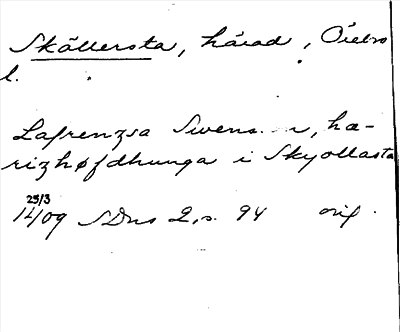 Skällersta, härad, Örebro
l.
Lafrenzsa Swens.. i, hæ-
rizhøfdhunga i Skyollasta
25/3
1409 SDns 2, s. 94 orig.